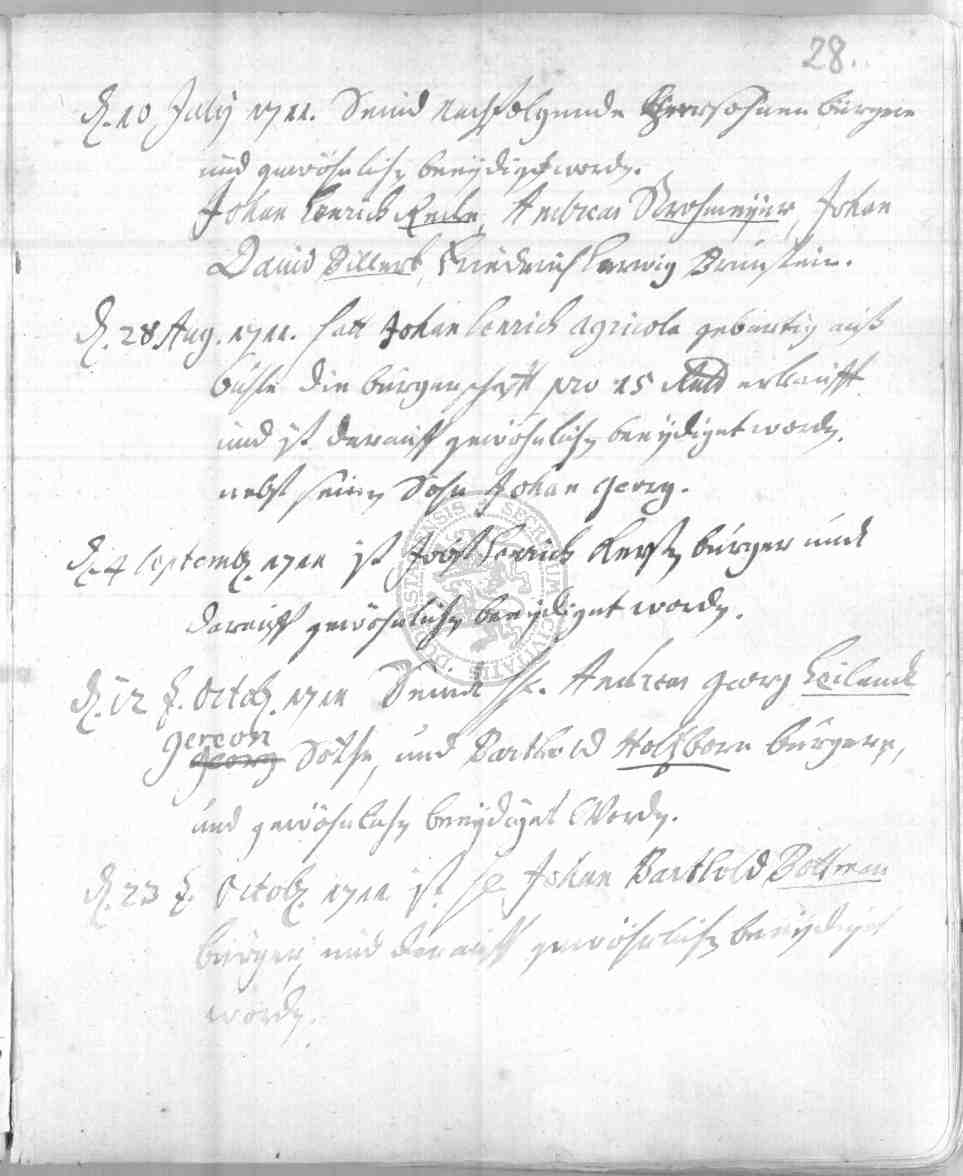 28.
d. 10 July 1711. Seind nachfolgende Persohnen bürgere
und gewöhnlich beeydiget worden.
Johan Henrich Andreas Strohmeyer, Johan
David Dillert, Friederich Herwig Brunstein.
d. 28 Aug. 1711. hatt Johan Henrich Agricola gebürtig auß
die bürgerschafft pro 15 erkaufft
und ist darauff gewöhnlich beeydiget worden,
nebst seinen Sohn Johan Georg.
d. 4 Septemb. 1711 ist Joost Henrich bürger und
darauff gewöhnlich beeydiget worden.
d. 12 t. Octob. 1711 Seind H. Andreas Georg Heiland
Gereon
Georg Sothe, und Barthold Holtzborn bürgere,
und gewöhnlich beeydiget Worden.
d. 23 t. Octob. 1711 ist H. Johan Barthold Boltman
bürger, und darauff gewöhnlich beeydiget
worden.
SECRETUM CIVITATIS